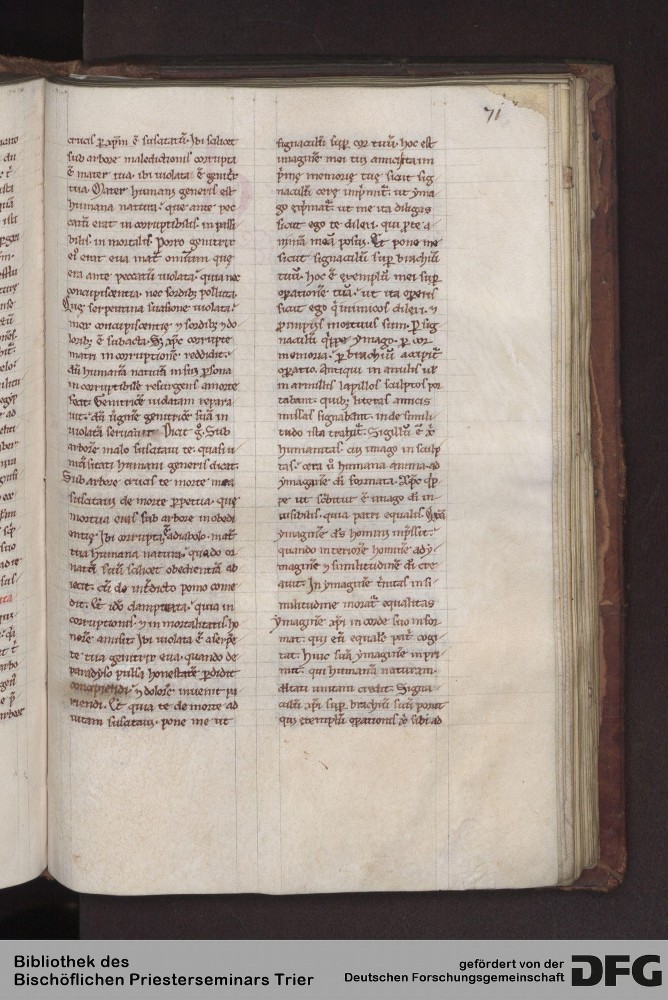 71
crucis p xpm ē suscitatū. Ibi scilicet
sub arbore maledictionis corrupta
ē mater tua. ibi uiolata ē genitͥx
tua. Mater humani generis est
humana natura. que ante pec
catū erat in corruptibilis. in passi
bilis. in mortalis. Porro genitrix
erat eua mat omniūm que
era ante peccatū uiolata. quia nec
concupiscentia. nec sordibꝰ polluta.
serpentina suasione uiolata.
mox concupiscentie ⁊ sordibꝰ ⁊ do
loribꝰ ē subacta. xpc corrupte
matri in corruptionē reddidit.
dū humanā naturā in sua psona
in corruptibilē resurgens amorte
Genitricē uiolatam repara
uit. dū genitricē suā in
uiolatā seruauit. Dicit g. Sub
arbore malo suscitaui te. quasi u
niūsitati humani generis dicat.
Sub arbore crucis te morte mea
suscitaui de morte ppetua. que
mortua eras sub arbore in obedi
entie. Ibi corrupta ē adiabolo. mat
tua humana natura. quādo or
natū suū scilicet obedientiā ab
iecit. cū de int̄dicto pomo come
dit. Et idō dampnata. quia in
corruptionis ⁊ in mortalitatis ho
norē amisit. Ibi uiolata ē aserpē
te tua genitrix eua. quando de
paradyso pulsa honestatē pdidit
concipiendi. ⁊ dolorē inuenit pa
riendi. Et quia te de morte ad
uitam suscitaui. pone me ut
signaculū sup cor tuū. hoc est
imaginē mei tui amicissimi
pͥme memorie tue sicut sig
naculū cere inpͥmit. ut yma
go expͥmat. ut me ita diligas
sicut ego te dilexi. qui p te a
nimā meā posui. Et pone me
sicut signaculū sup brachiū
tuū. hoc ē exemplū mei sup
opationē tuā. ut ita operis
sicut ego qͥ inimicos dilexi. ⁊
p impiis mortuus sum. p sig
naculū qͥppe ymago. p cor
memoria. p brachiū accipit
opatio. Antiqui in anulis uel
in armillis lapillos sculptos por
tabant. quibꝰ litteras amicis
missas signabant. inde simili
tudo ista trahit. Sigillū ē xͥ
humanitas. cui imago in sculp
tas. cera u humana anima. ad
ymaginē dī formata. Xpc
pe ut scͥbitur ē imago dī in
uisibilis. quia patri equalis.
ymaginē dͥs homini inpͥssit.
quando interiorē hominē ad y
maginē ⁊ similitudinē dī cre
auit. In ymagine tͥnitas in si
militudine morat equalitas
Ymaginē xpi in corde suo infor
mat. qui eū equalē patͥ cogi
tat. Huic suā ymaginē inpri
mit. qui humanā naturam
dītati unitam credit. Signa
culū xpi sup brachiū suū ponit
qui exemplū opationis xͥ sibi ad
Bibliothek des
Bischöflichen Priesterseminars Trier
gefördert von der
Deutschen Forschungsgemeinschaft
DFG